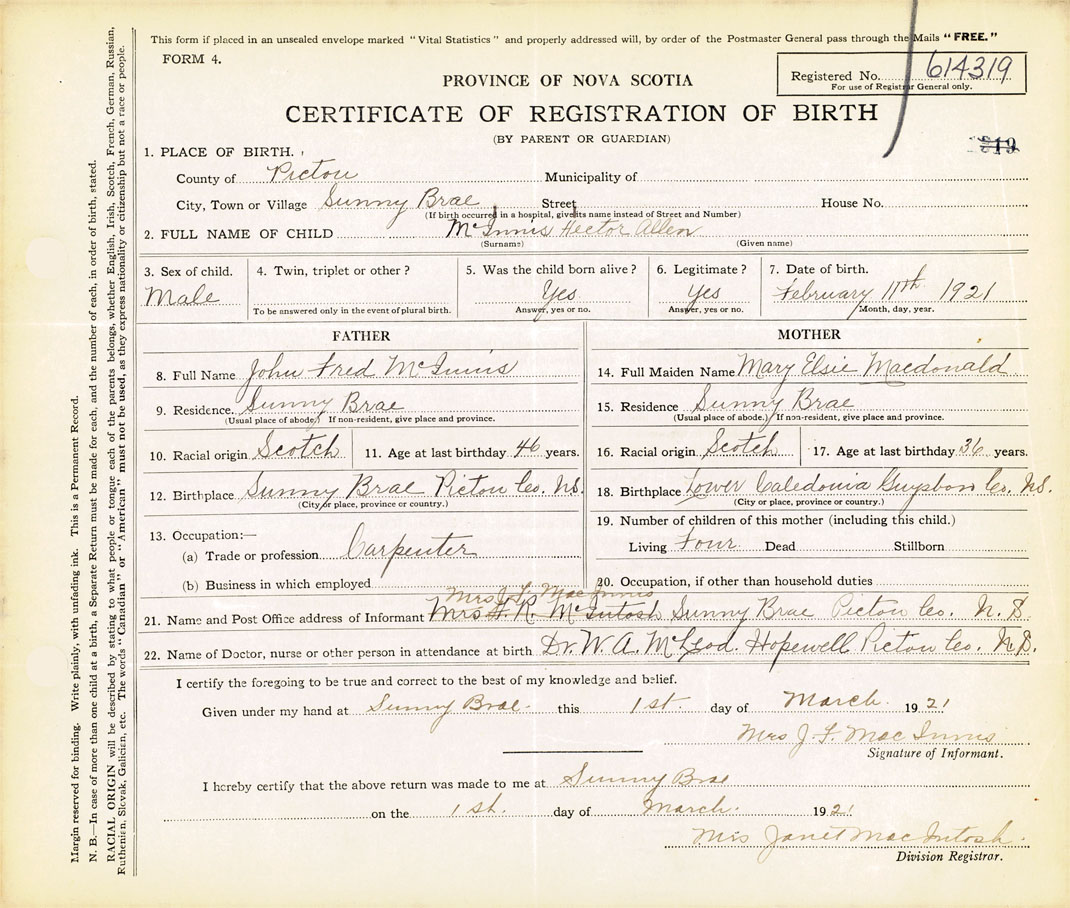 This form if placed in an unsealed envelope marked "Vital Statistics" and properly addressed will, by order of the Postmaster General pass through the Mails "FREE."
FORM 4.
Registered No. 614319
For use of Registrar General only.
PROVINCE OF NOVA SCOTIA
CERTIFICATE OF REGISTRATION OF BIRTH
(BY PARENT OR GUARDIAN)
1. PLACE OF BIRTH.
County of Pictou Municipality of
City, Town or Village Sunny Brae Street House No.
(If birth occurred in a hospital, give its name instead of Street and Number)
2. FULL NAME OF CHILD McInnis Hector Allen
(Surname) (Given name)
3. Sex of child. 4. Twin, triplet or other? 5. Was the child born alive? 6. Legitimate? 7. Date of birth.
Male Yes Yes February 11th 1921
To be answered only in the event of plural birth. Answer, yes or no. Answer, yes or no. Month, day, year.
FATHER
8. Full Name John Fred McInnis
9. Residence. Sunny Brae
(Usual place of abode.) If non-resident, give place and province.
10. Racial origin Scotch 11. Age at last birthday 46 years.
12. Birthplace Sunny Brae Pictou Co. N.S.
(City or place, province or country.)
13. Occupation:—
(a) Trade or profession Carpenter
(b) Business in which employed
MOTHER
14. Full Maiden Name Mary Elsie Macdonald
15. Residence Sunny Brae
(Usual place of abode.) If non-resident, give place and province.
16. Racial origin Scotch 17. Age at last birthday 36 years.
18. Birthplace Lower Caledonia Guysboro Co. N.S.
(City or place, province or country.)
19. Number of children of this mother (including this child.)
Living Four Dead Stillborn
20. Occupation, if other than household duties
Mrs J. F. MacInnis
21. Name and Post Office address of Informant Mrs H. R. McIntosh Sunny Brae Pictou Co. N. S
22. Name of Doctor, nurse or other person in attendance at birth Dr. W. A. McLeod. Hopewell Pictou Co. N.S.
I certify the foregoing to be true and correct to the best of my knowledge and belief.
Given under my hand at Sunny Brae this 1st. day of March 1921
Mrs J. F. MacInnis
Signature of Informant.
I hereby certify that the above return was made to me at Sunny Brae
on the 1st. day of March. 1921
Mrs Janet MacIntosh.
Division Registrar.
Margin reserved for binding. Write plainly, with unfading ink. This is a Permanent Record.
N. B.—In case of more than one child at a birth, a Separate Return must be made for each, and the number of each, in order of birth, stated.
RACIAL ORIGIN will be described by stating to what people or tongue each of the parents belongs, whether English, Irish, Scotch, French, German, Russian,
Ruthenian, Slovak, Galician, etc. The words "Canadian" or "American" must not be used, as they express nationality or citizenship but not a race or people.